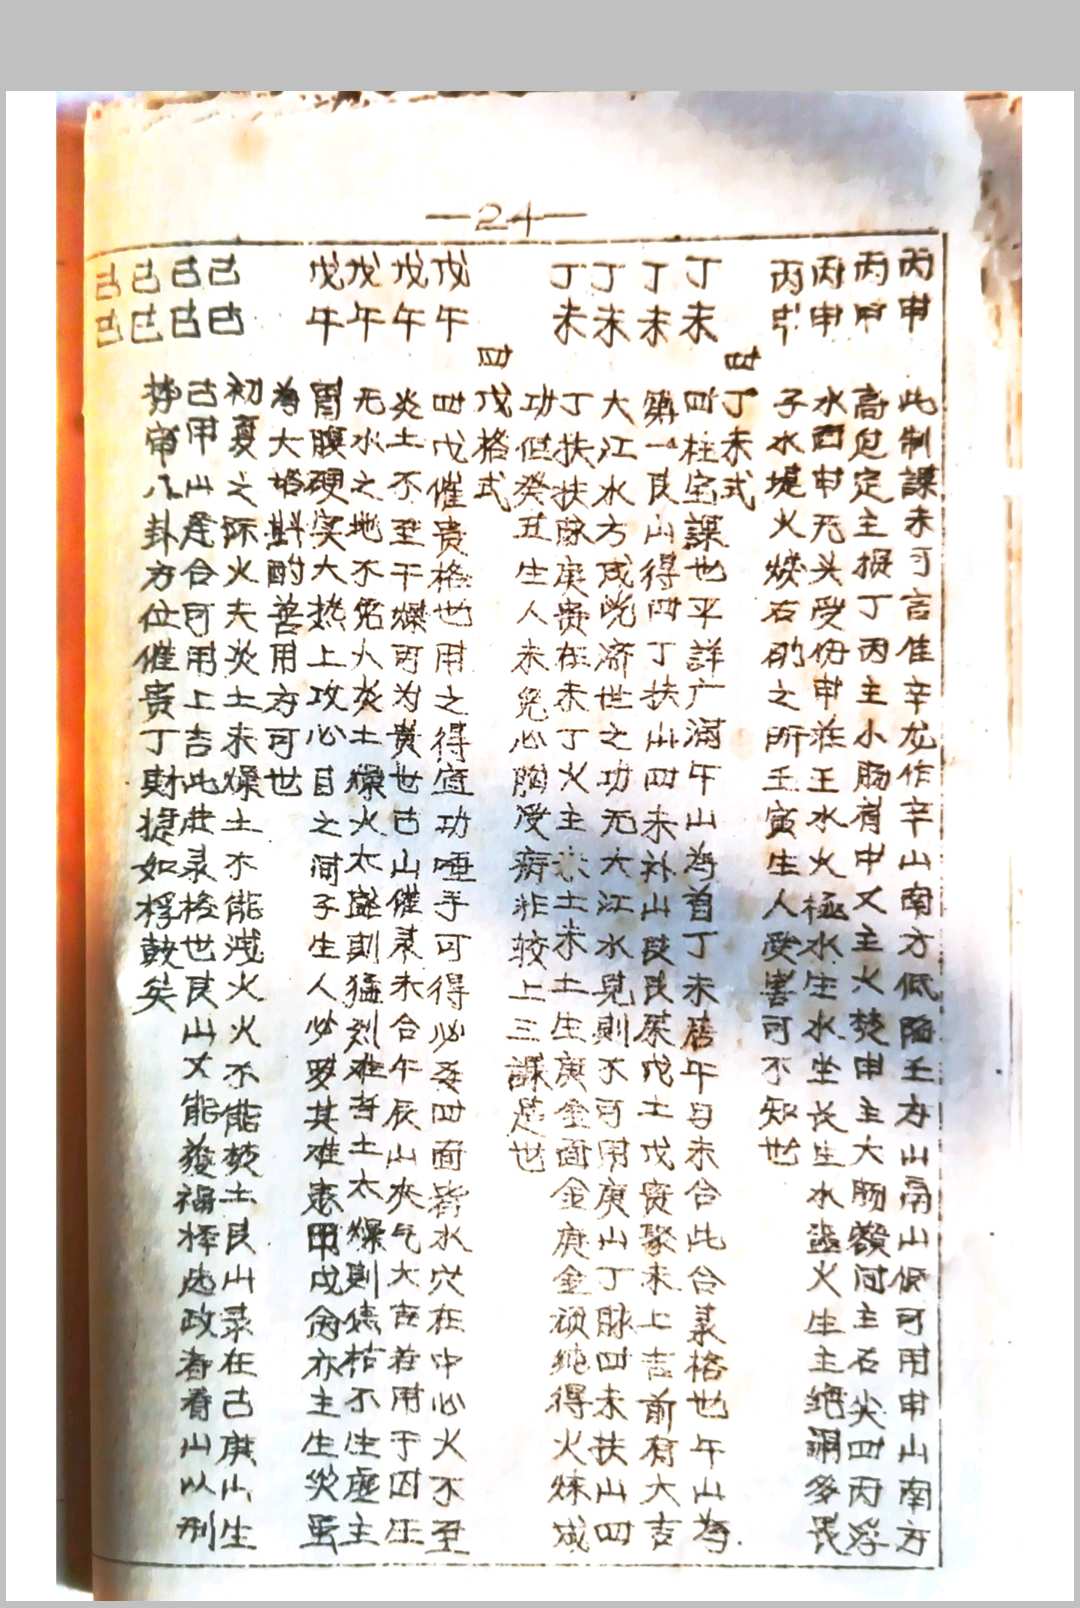 —24—
丙申 此制課未可言佳辛龙作辛山南方低陷壬方山高山低可用申山南方
丙申 高过定主损丁丙主小肠肴申又主火焚申主大肠额问主石尖四丙浮
丙申 水西申无头受伤申在王水火極水生水坐长生水遥火生主绝调多畏
丙申 子水堤火烧石砂之所壬寅生人受害可不知也
四丁未式
丁未 四柱宝課也平詳广满午山為首丁未居午与未合此合录格也午山為
丁未 第一艮山得四丁扶山四未补山艮艮属戊土戊贵聚未上吉前有大吉
丁未 大江水方成既济世之功无大江水見則不可用庚山丁脉四未扶山四
丁未 丁扶扶脉庚贵在未丁火主未土未土生庚金面金庚金顽纯得火炼成
功但癸丑生人未免心胸受病非较上三課是也
四戊格式
戊午 四戊催贵格也用之得宜功唾手可得必要四面皆水穴在中心火不至
戊午 炎土不至干燥可为贵也己山催录未合午辰山夹气大吉若用于四圧
戊午 无水之地不免火炎土燥火太盛則猛烈难当土太燥則焦枯不生虚主
戊午 胃腹硬实大热上攻心目之间子生人必要其准患甲戊肉亦主生災虽
為大格斟酌善用方可也
己巳 初夏之际火夫炎土未燥土不能成火火不能焚土艮山录在己庚山生
己巳 己甲山是合可用上吉此进录格也艮山又能發福择速政春看山以刑
己巳 择帝八卦方位催贵丁財捷如桴鼓矣
己巳